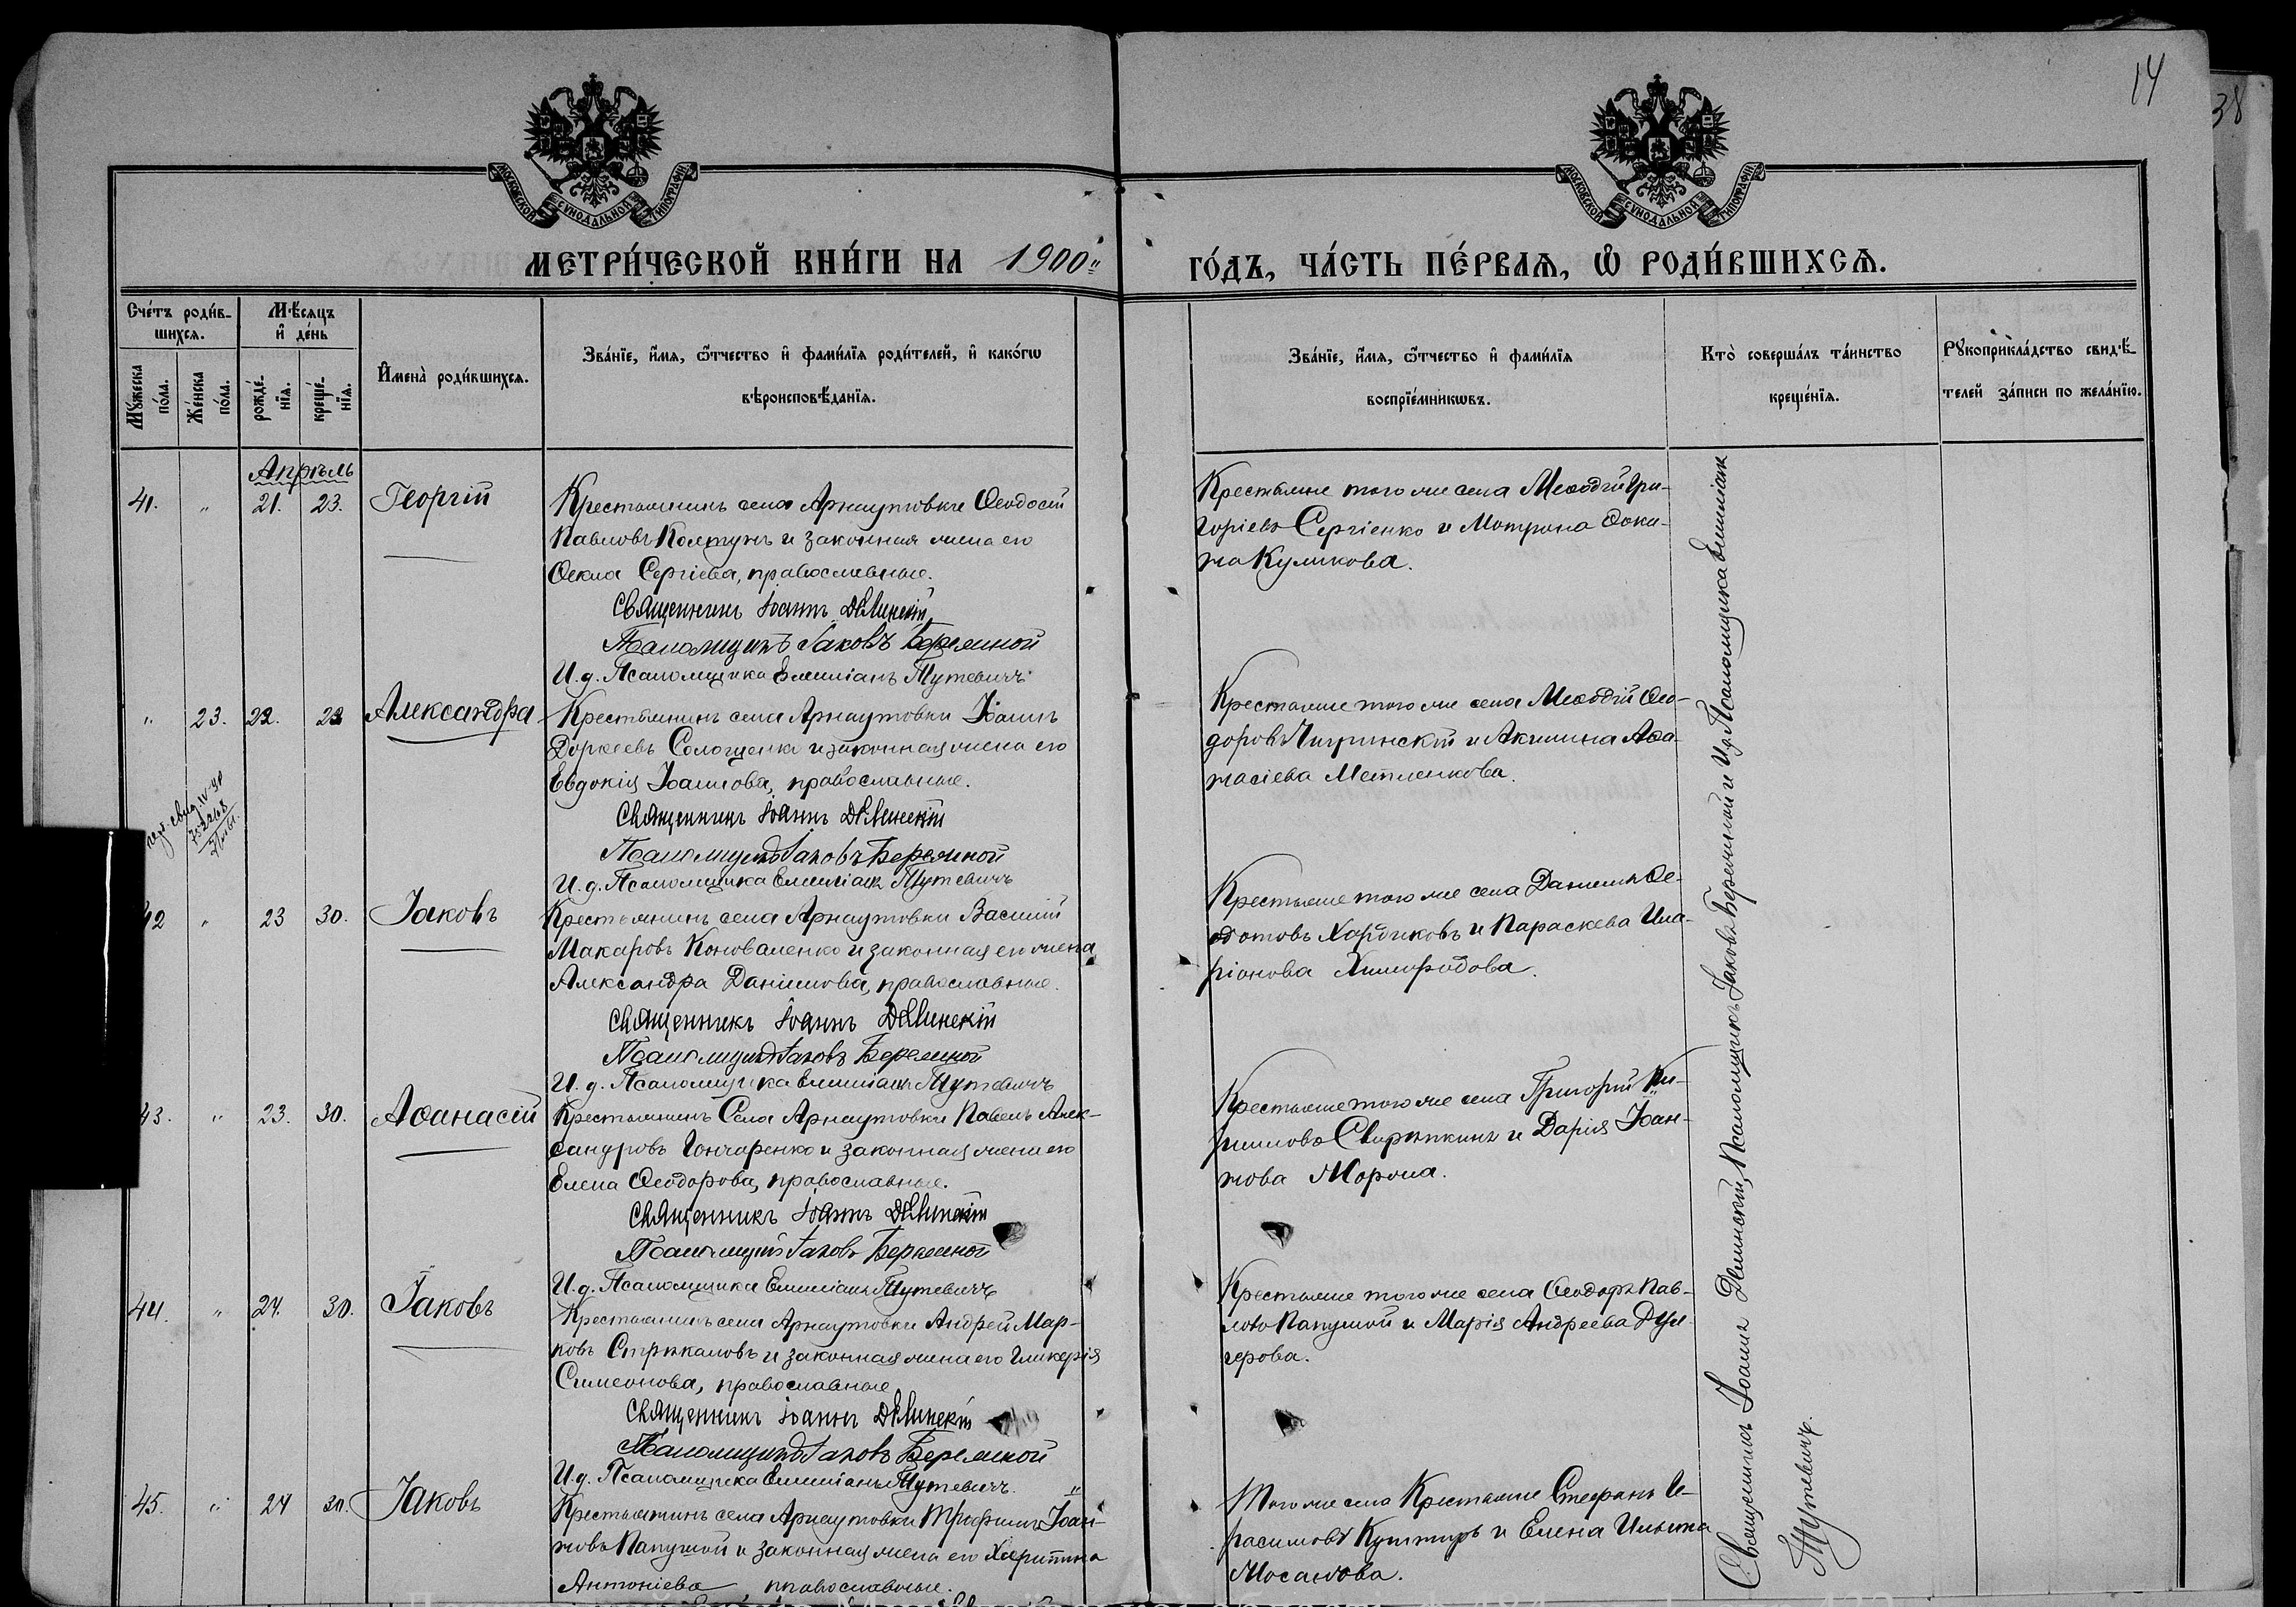 14
38
МОСКОВСКОЙ СѴНОДАЛЬНОЙ ТИПОГРАФІИ
МОСКОВСКОЙ СѴНОДАЛЬНОЙ ТИПОГРАФІИ
МЕТРИ́ЧЕСКОЙ КНИ́ГИ НА 1900
ГО́ДЪ, ЧА́СТЬ ПЕ́РВАѦ, Ѡ҆ РОДИ́ВШИХСѦ.
Сче́тъ роди́в-
шихсѧ.
Мꙋ́жеска по́ла.
Же́нска по́ла.
Мѣ́сѧцъ
и҆ де́нь
рожде́-
нїѧ.
креще́-
нїѧ.
И҆мена̀ роди́вшихсѧ.
Зва́нїе, и҆́мѧ, ѻ҆́тчество и҆ фами́лїѧ роди́телей, и҆ како́гѡ
вѣроисповѣ́данїѧ.
Зва́нїе, и҆́мѧ, ѻ҆́тчество и҆ фами́лїѧ
воспрїе́мникѡвъ.
Кто̀ соверша́лъ та́инство
креще́нїѧ.
Рꙋкоприкла́дство свидѣ́-
телей за́писи по жела́нїю.
Апрѣль
41. " 21. 23. Георгій
Крестьянинъ села Арнаутовки Ѳеодосій
Павловъ Колтунъ и законная жена его
Ѳекла Сергіева, православные.
Священникъ Іоаннъ Дѣлинскій
Псаломщикъ Іаковъ Бережной
И. д. Псаломщика Емиліанъ Тутевичъ
Крестьяне того же села Меѳодій Гри-
горіевъ Сергіенко и Матрона Ѳоки-
на Куликова.
" 23. 22. 23 Александра
Крестьянинъ села Арнаутовки Іоаннъ
Сологценко и законная жена его
Евдокія Іоаннова, православные.
Священникъ Іоаннъ Дѣлинскій
Псаломщикъ Іаковъ Бережной
И. д. Псаломщика Емиліанъ Тутевичъ
Крестьяне того же села Меѳодій Ѳео-
доровъ Чигринскій и Акилина Аѳа-
насіева Метленкова.
свид. IV-ЯР
752268
42 " 23 30. Іаковъ
Крестьянинъ села Арнаутовки Василій
Макаровъ Коноваленко и законная его жена
Александра Даніилова, православные.
Священникъ Іоаннъ Дѣлинскій
Псаломщикъ Іаковъ Бережной
И. д. Псаломщика Емиліанъ Тутевичъ
Крестьяне того же села Даніилъ Ѳе-
одотовъ Хардиковъ и Параскева Ила-
ріонова Хилиродова.
43. " 23. 30. Аѳанасій
Крестьянинъ Села Арнаутовки Павелъ Алек-
сандровъ Гончаренко и законная жена его
Елена Ѳеодорова, православные.
Священникъ Іоаннъ Дѣлинскій
Псаломщикъ Іаковъ Бережной
И. д. Псаломщика Емиліанъ Тутевичъ
Крестьяне того же села Григорій Ки-
рилловъ Свирѣпкинъ и Дарія Іоан-
нова Мороза.
44. " 24. 30. Іаковъ
Крестьянинъ села Арнаутовки Андрей Мар-
ковъ Стрѣкаловъ и законная жена его Гликерія
Симеонова, православные
Священникъ Іоаннъ Дѣлинскій
Псаломщикъ Іаковъ Бережной
И. д. Псаломщика Емиліанъ Тутевичъ.
Крестьяне того же села Ѳеодоръ Пав-
ловъ Папушой и Марія Андреева Дул-
герова.
45. " 24 30. Іаковъ
Крестьянинъ села Арнаутовки Трифиллъ Іоан-
новъ Папушой и законная жена его Харитина
Антоніева, православные.
Того же села Крестьяне Стефанъ Ге-
расимовъ Куштиръ и Елена Ильина
Мосанова.
Священникъ Іоаннъ Дѣлинскій, Псаломщикъ Іаковъ Бережной и И.д. Псаломщика Емиліанъ
Тутевичъ.